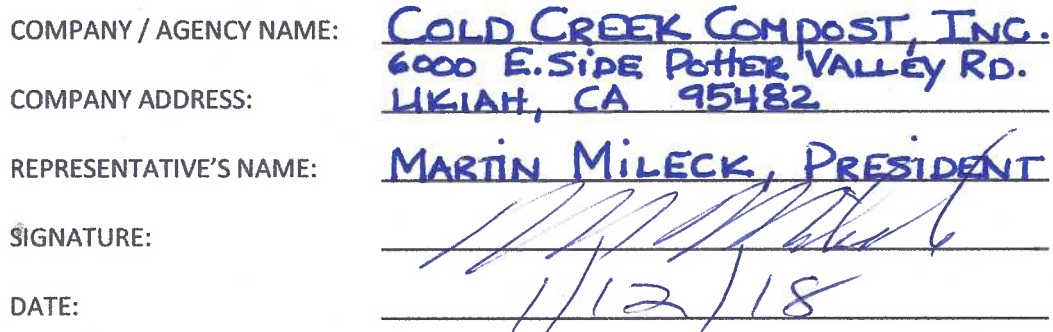 COMPANY / AGENCY NAME: COLD CREEK COMPOST, INC.
6000 E. SIDE POTTER VALLEY RD.
COMPANY ADDRESS: UKIAH, CA 95482
REPRESENTATIVE'S NAME: MARTIN MILECK, PRESIDENT
SIGNATURE:
DATE: 1/12/18